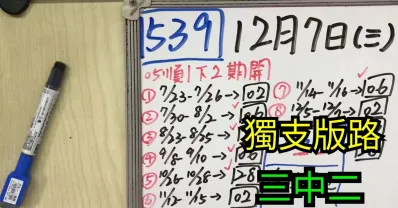 539 12月7日(三)
05順1下2期開
① 7/23-7/26→02
② 7/30-8/2→06
③ 8/23-8/25→
④ 9/8-9/10→
⑤ 10/26-10/28→28
⑥ 11/12-11/15→02
⑦ 11/14-11/16→06
⑧ 12/5-12/7→02
獨支版路
三中二